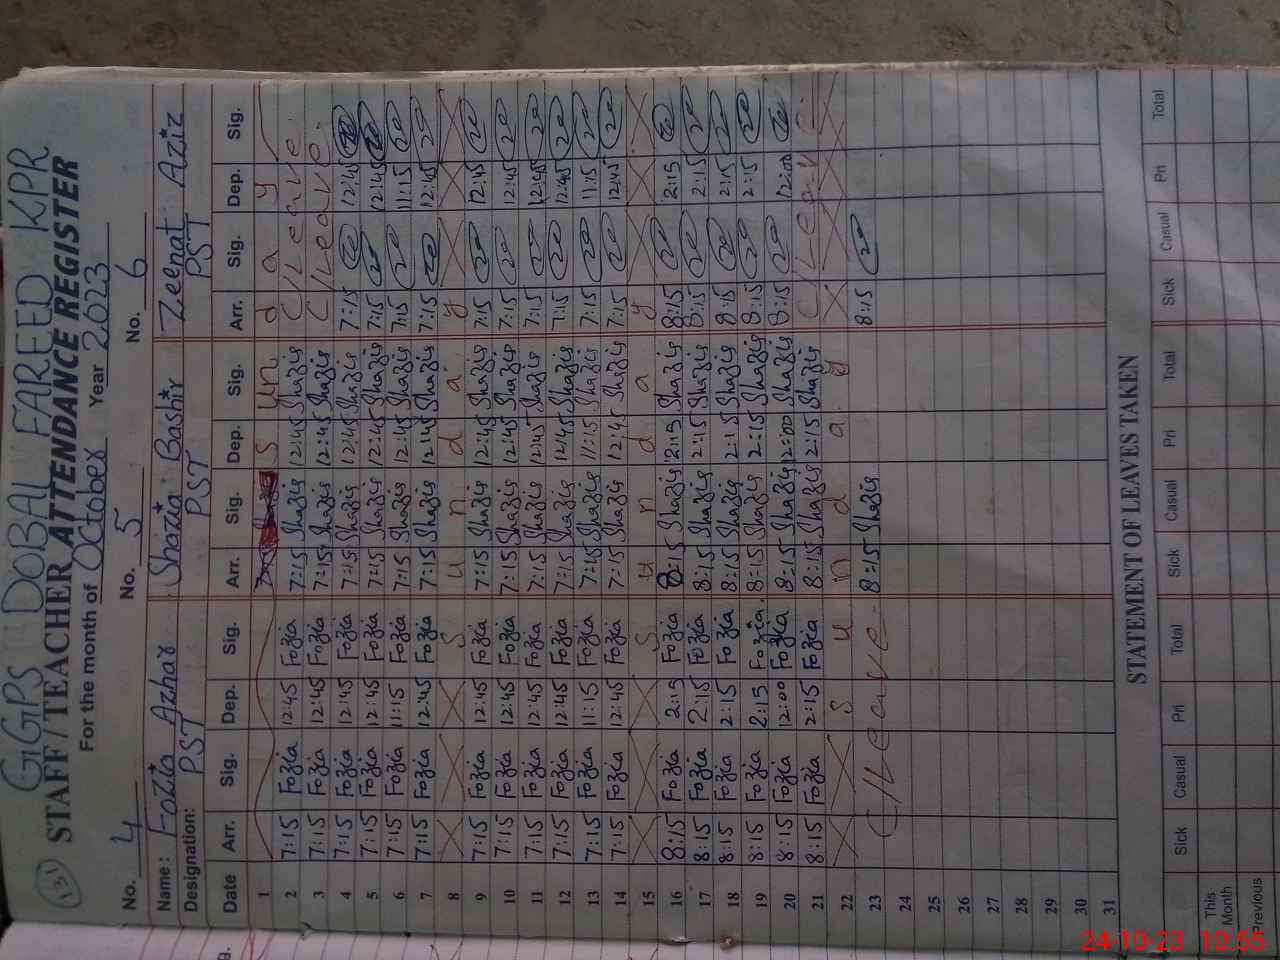 (131) GGPS DOBAL FAREED KPR
STAFF/TEACHER ATTENDANCE REGISTER
For the month of October Year 2023
No. 4 No. 5 No. 6
Name: Fozia Azhar Shazia Bashir Zeenat Aziz
Designation: PST PST PST
Date Arr. Sig. Dep. Sig. Arr. Sig. Dep. Sig. Arr. Sig. Dep. Sig.
1 S u n d a y
2 7:15 Fozia 12:45 Fozia 7:15 Shazia 12:45 Shazia C/Leave
3 7:15 Fozia 12:45 Fozia 7:15 Shazia 12:45 Shazia C/Leave
4 7:15 Fozia 12:45 Fozia 7:15 Shazia 12:45 Shazia 7:15 12:45
5 7:15 Fozia 12:45 Fozia 7:15 Shazia 12:45 Shazia 7:15 12:45
6 7:15 Fozia 11:15 Fozia 7:15 Shazia 12:45 Shazia 7:15 11:15
7 7:15 Fozia 12:45 Fozia 7:15 Shazia 12:45 Shazia 7:15 12:45
8 S u n d a y
9 7:15 Fozia 12:45 Fozia 7:15 Shazia 12:45 Shazia 7:15 12:45
10 7:15 Fozia 12:45 Fozia 7:15 Shazia 12:45 Shazia 7:15 12:45
11 7:15 Fozia 12:45 Fozia 7:15 Shazia 12:45 Shazia 7:15 12:45
12 7:15 Fozia 12:45 Fozia 7:15 Shazia 12:45 Shazia 7:15 12:45
13 7:15 Fozia 11:15 Fozia Shazia 11:15 Shazia 7:15 11:15
14 7:15 Fozia 12:45 Fozia 7:15 Shazia 12:45 Shazia 7:15 12:45
15 S u n d a y
16 8:15 Fozia 2:15 Fozia 8:15 Shazia 2:15 Shazia 8:15 2:15
17 8:15 Fozia 2:15 Fozia 8:15 Shazia 2:15 Shazia 8:15 2:15
18 8:15 Fozia 2:15 Fozia 8:15 Shazia 2:15 Shazia 8:15 2:15
19 8:15 Fozia 2:15 Fozia 8:15 Shazia 2:15 Shazia 8:15 2:15
20 8:15 Fozia 12:00 Fozia 8:15 Shazia 12:00 Shazia 8:15 12:00
21 8:15 Fozia 2:15 Fozia 8:15 Shazia 2:15 Shazia C/Leave
22 S u n d a y
23 C/Leave 8:15 Shazia 8:15
24
25
26
27
28
29
30
31
STATEMENT OF LEAVES TAKEN
Sick Casual Pri Total Sick Casual Pri Total Sick Casual Pri Total
This Month
Previous
24-10-23 10:55